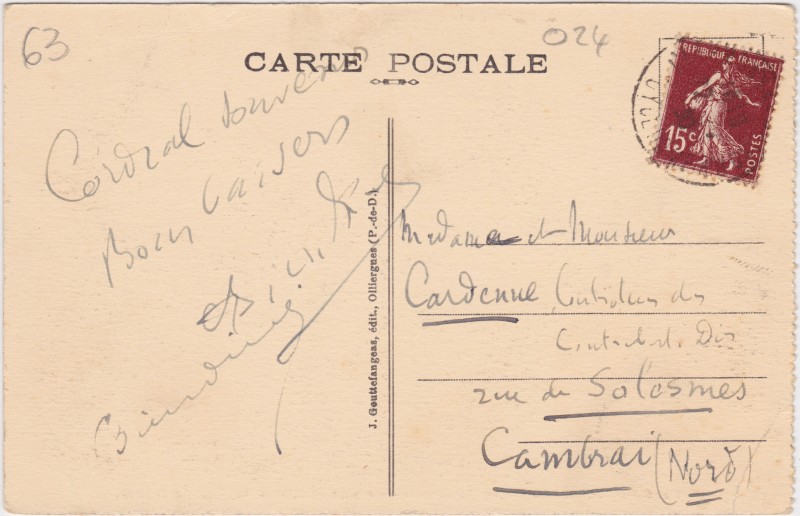 63
024
CARTE POSTALE
REPUBLIQUE FRANÇAISE
15c
POSTES
Cordial souvenir
Bons baisers
J. Gouttefangeas, édit., Olliergues (P.-de-D.)
Madame et Monsieur
Cardenne
des
Dir
rue de Solesmes
Cambrai (Nord)